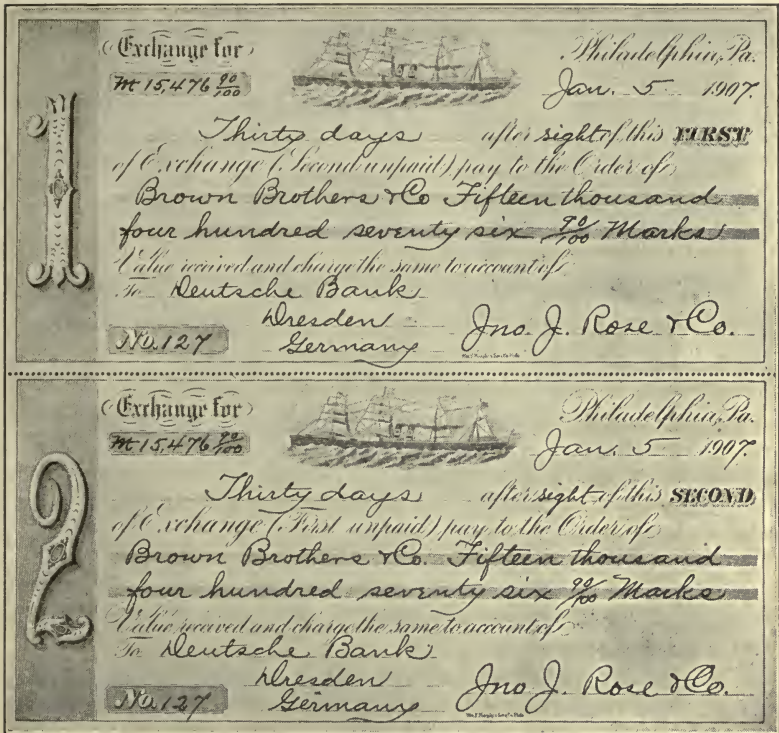 Exchange for
Philadelphia, Pa.
M 15,476 90/100
Jan. 5 1907.
1
Thirty days after sight of this FIRST
of Exchange (Second unpaid) pay to the Order of
Brown Brothers & Co Fifteen thousand
four hundred seventy six 90/100 Marks
Value received and charge the same to account of
To Deutsche Bank
Dresden
No. 127
Germany
Jno. J. Rose & Co.
Exchange for
Philadelphia, Pa.
M 15,476 90/100
Jan. 5 1907.
2
Thirty days after sight of this SECOND
of Exchange (First unpaid) pay to the Order of
Brown Brothers & Co. Fifteen thousand
four hundred seventy six 90/100 Marks
Value received and charge the same to account of
To Deutsche Bank
Dresden
No. 127
Germany
Jno J. Rose & Co.